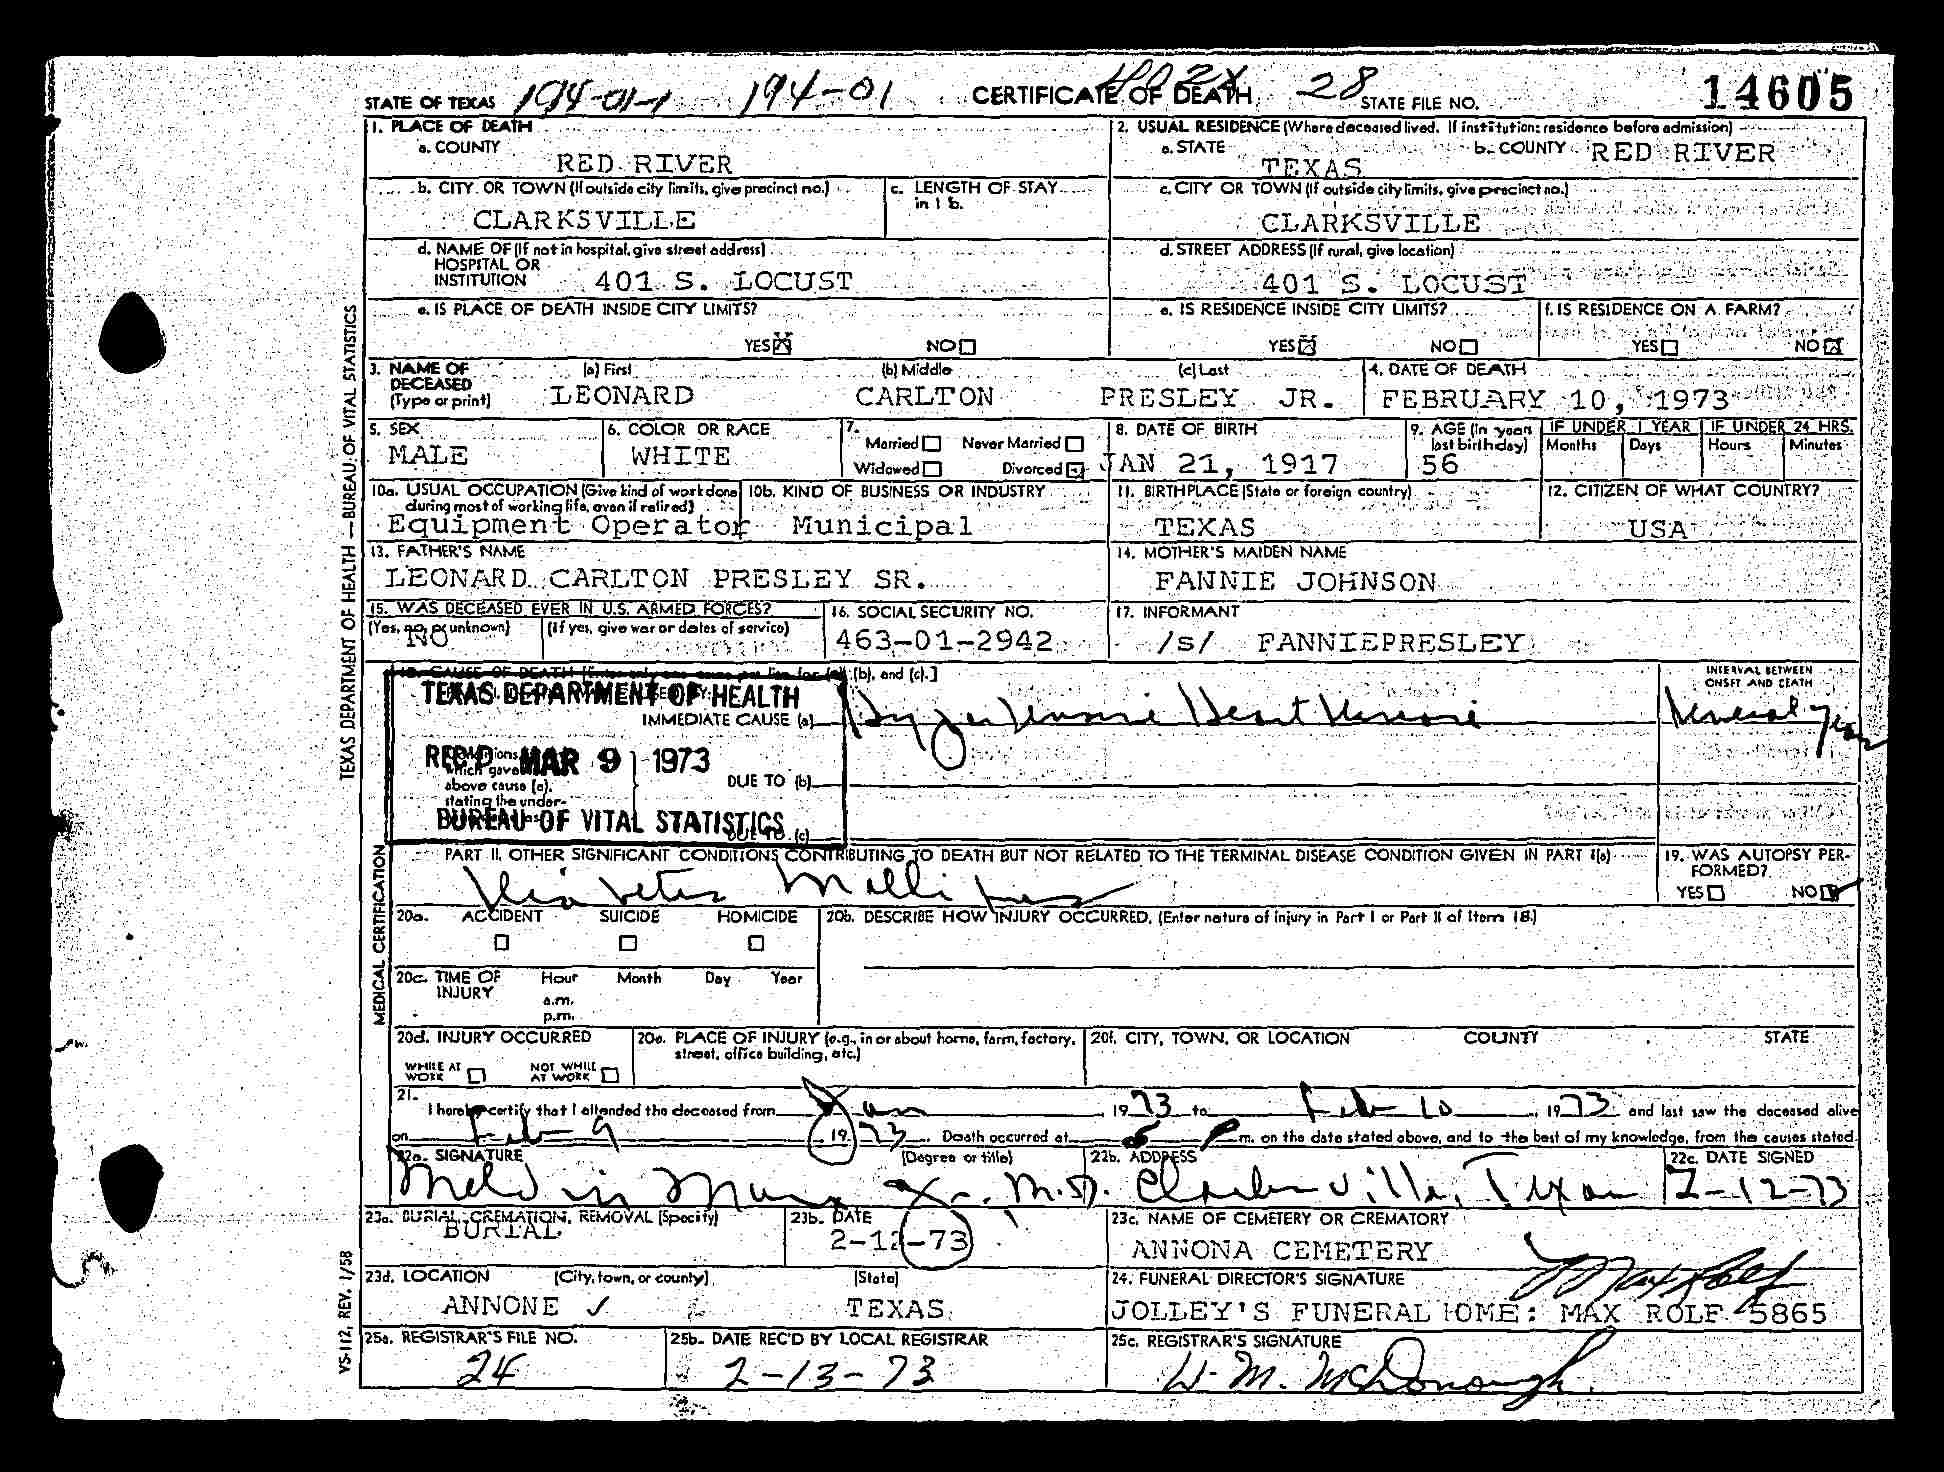 STATE OF TEXAS 194-01-1 194-01 CERTIFICATE OF DEATH 402X 28 STATE FILE NO. 14605
1. PLACE OF DEATH
a. COUNTY
RED RIVER
2. USUAL RESIDENCE (Where deceased lived. If institution: residence before admission)
a. STATE
TEXAS
b. COUNTY RED RIVER
b. CITY OR TOWN (If outside city limits, give precinct no.)
CLARKSVILLE
c. LENGTH OF STAY
in 1 b.
c. CITY OR TOWN (If outside city limits, give precinct no.)
CLARKSVILLE
d. NAME OF (If not in hospital, give street address)
HOSPITAL OR
INSTITUTION 401 S. LOCUST
d. STREET ADDRESS (If rural, give location)
401 S. LOCUST
e. IS PLACE OF DEATH INSIDE CITY LIMITS?
YES NO
e. IS RESIDENCE INSIDE CITY LIMITS?
YES NO
f. IS RESIDENCE ON A FARM?
YES NO
3. NAME OF
DECEASED
(Type or print)
(a) First
LEONARD
(b) Middle
CARLTON
(c) Last
PRESLEY JR.
4. DATE OF DEATH
FEBRUARY 10, 1973
5. SEX
MALE
6. COLOR OR RACE
WHITE
7.
Married Never Married
Widowed Divorced
8. DATE OF BIRTH
JAN 21, 1917
9. AGE (In years
last birthday)
56
IF UNDER 1 YEAR
Months Days
IF UNDER 24 HRS.
Hours Minutes
10a. USUAL OCCUPATION (Give kind of work done
during most of working life, even if retired)
Equipment Operator
10b. KIND OF BUSINESS OR INDUSTRY
Municipal
11. BIRTHPLACE (State or foreign country)
TEXAS
12. CITIZEN OF WHAT COUNTRY?
USA
13. FATHER'S NAME
LEONARD CARLTON PRESLEY SR.
14. MOTHER'S MAIDEN NAME
FANNIE JOHNSON
15. WAS DECEASED EVER IN U.S. ARMED FORCES?
(Yes, no or unknown) (If yes, give war or dates of service)
NO
16. SOCIAL SECURITY NO.
463-01-2942
17. INFORMANT
/s/ FANNIEPRESLEY
18. CAUSE OF DEATH [Enter only one cause per line for (a), (b), and (c).]
INTERVAL BETWEEN
ONSET AND DEATH
TEXAS DEPARTMENT OF HEALTH
IMMEDIATE CAUSE (a)
Heart
REC'D MAR 9 1973
which gave
above cause (a),
stating the under-
DUE TO (b)
BUREAU OF VITAL STATISTICS
DUE TO (c)
PART II. OTHER SIGNIFICANT CONDITIONS CONTRIBUTING TO DEATH BUT NOT RELATED TO THE TERMINAL DISEASE CONDITION GIVEN IN PART I(a)
Diabetes Mellitus
19. WAS AUTOPSY PER-
FORMED?
YES NO
20a. ACCIDENT SUICIDE HOMICIDE
20b. DESCRIBE HOW INJURY OCCURRED. (Enter nature of injury in Part I or Part II of Item 18.)
20c. TIME OF
INJURY
Hour Month Day Year
a.m.
p.m.
20d. INJURY OCCURRED
WHILE AT
WORK
NOT WHILE
AT WORK
20e. PLACE OF INJURY (e.g., in or about home, farm, factory,
street, office building, etc.)
20f. CITY, TOWN, OR LOCATION COUNTY STATE
21.
I hereby certify that I attended the deceased from Jan 1973 to Feb 10, 1973 and last saw the deceased alive
on Feb 9 1973. Death occurred at P m. on the date stated above, and to the best of my knowledge, from the causes stated.
22a. SIGNATURE (Degree or title)
M.D.
22b. ADDRESS
Clarksville, Texas
22c. DATE SIGNED
2-12-73
23a. BURIAL, CREMATION, REMOVAL (Specify)
BURIAL
23b. DATE
2-12-73
23c. NAME OF CEMETERY OR CREMATORY
ANNONA CEMETERY
23d. LOCATION (City, town, or county) (State)
ANNONE ✓ TEXAS
24. FUNERAL DIRECTOR'S SIGNATURE
Max Rolf
JOLLEY'S FUNERAL HOME: MAX ROLF 5865
25a. REGISTRAR'S FILE NO.
24
25b. DATE REC'D BY LOCAL REGISTRAR
2-13-73
25c. REGISTRAR'S SIGNATURE
W. M. McDonough
TEXAS DEPARTMENT OF HEALTH — BUREAU OF VITAL STATISTICS
MEDICAL CERTIFICATION
VS-112, REV. 1/58